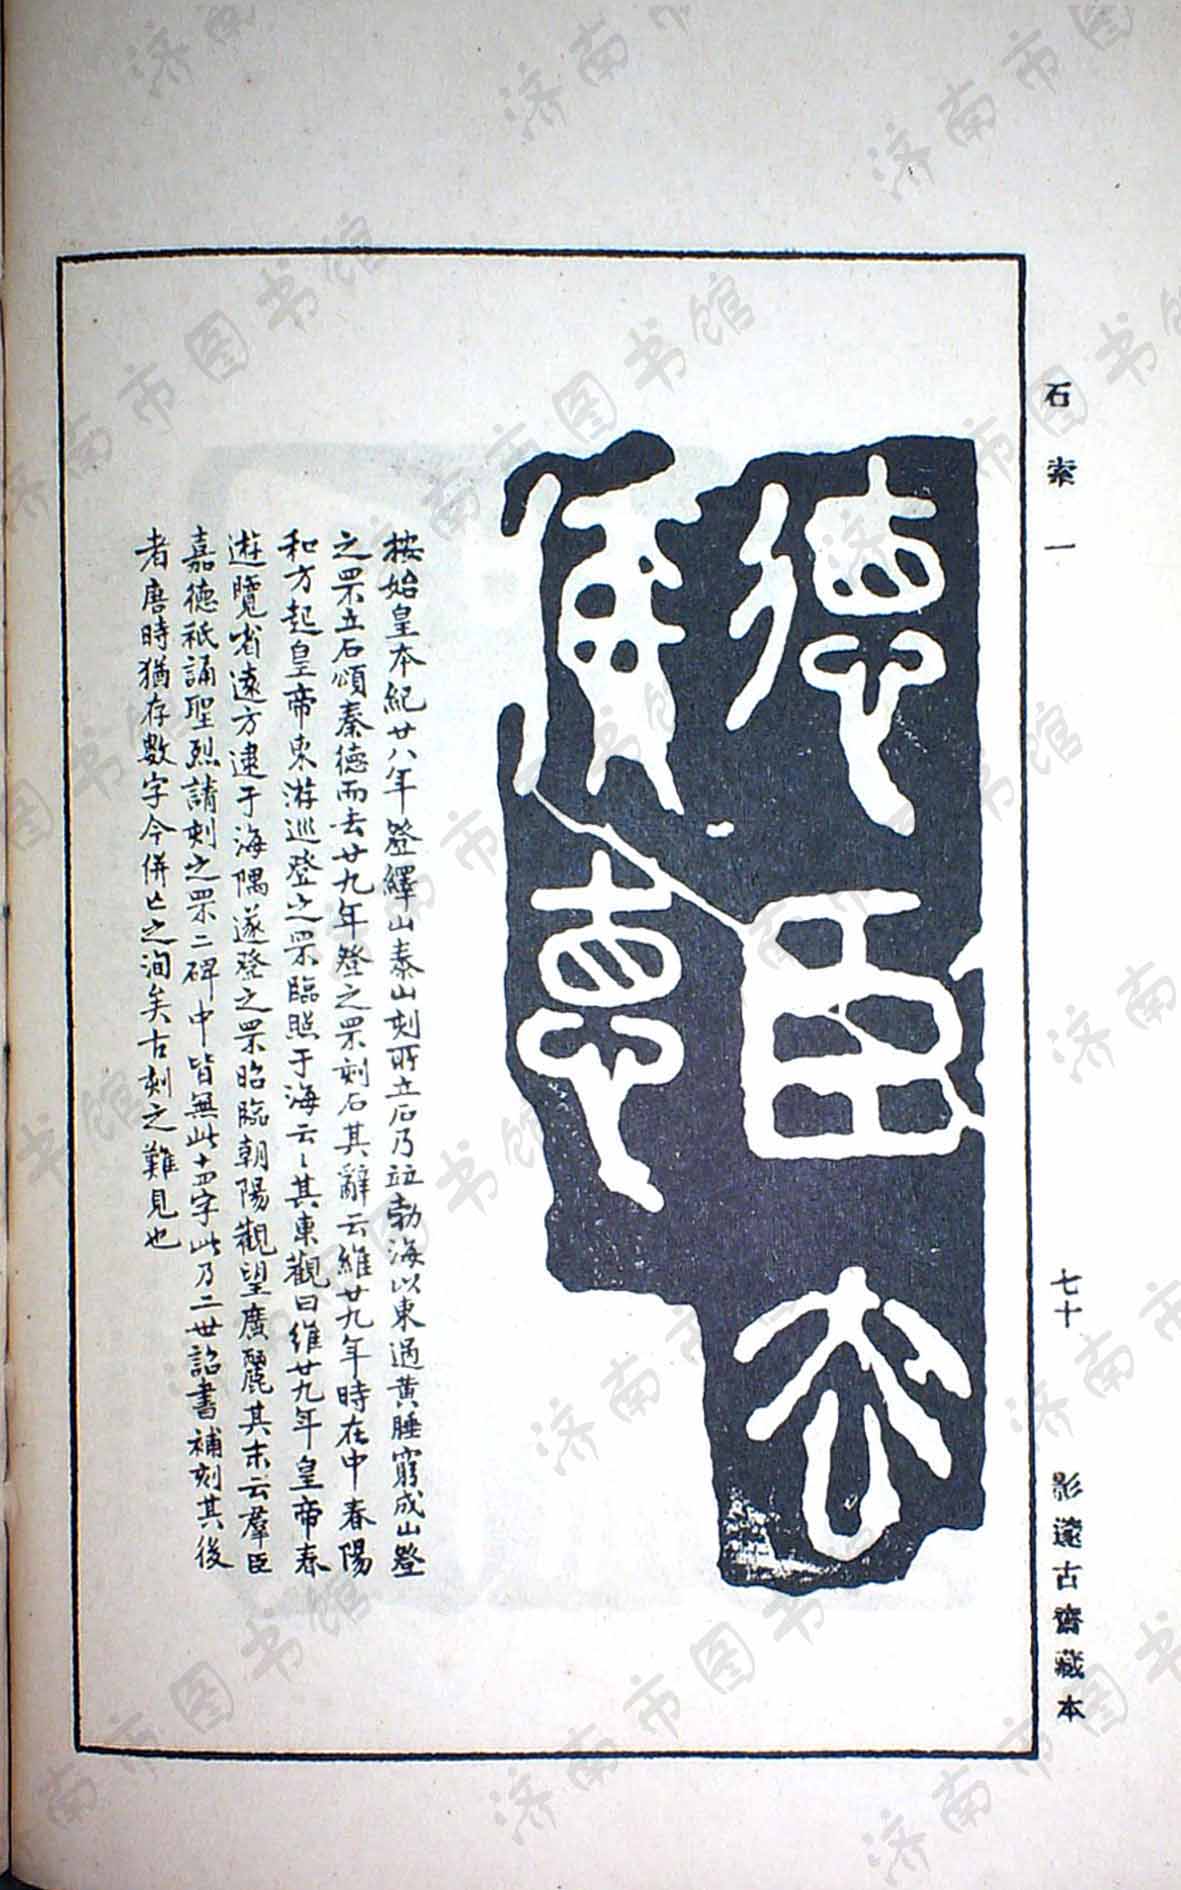 石索一　七十　影邃古齋藏本
德臣去
悳
按始皇本紀廿八年登繹山泰山刻所立石乃竝勃海以東過黃腄窮成山登
之罘立石頌秦德而去廿九年登之罘刻石其辭云維廿九年時在中春陽
和方起皇帝東游巡登之罘臨照于海云〻其東觀曰維廿九年皇帝春
遊覽省遠方逮于海隅遂登之罘昭臨朝陽觀望廣麗其末云羣臣
嘉德祇誦聖烈請刻之罘二碑中皆無此十四字此乃二世詔書補刻其後
者唐時猶存數字今併亡之洵矣古刻之難見也
济南市图书馆